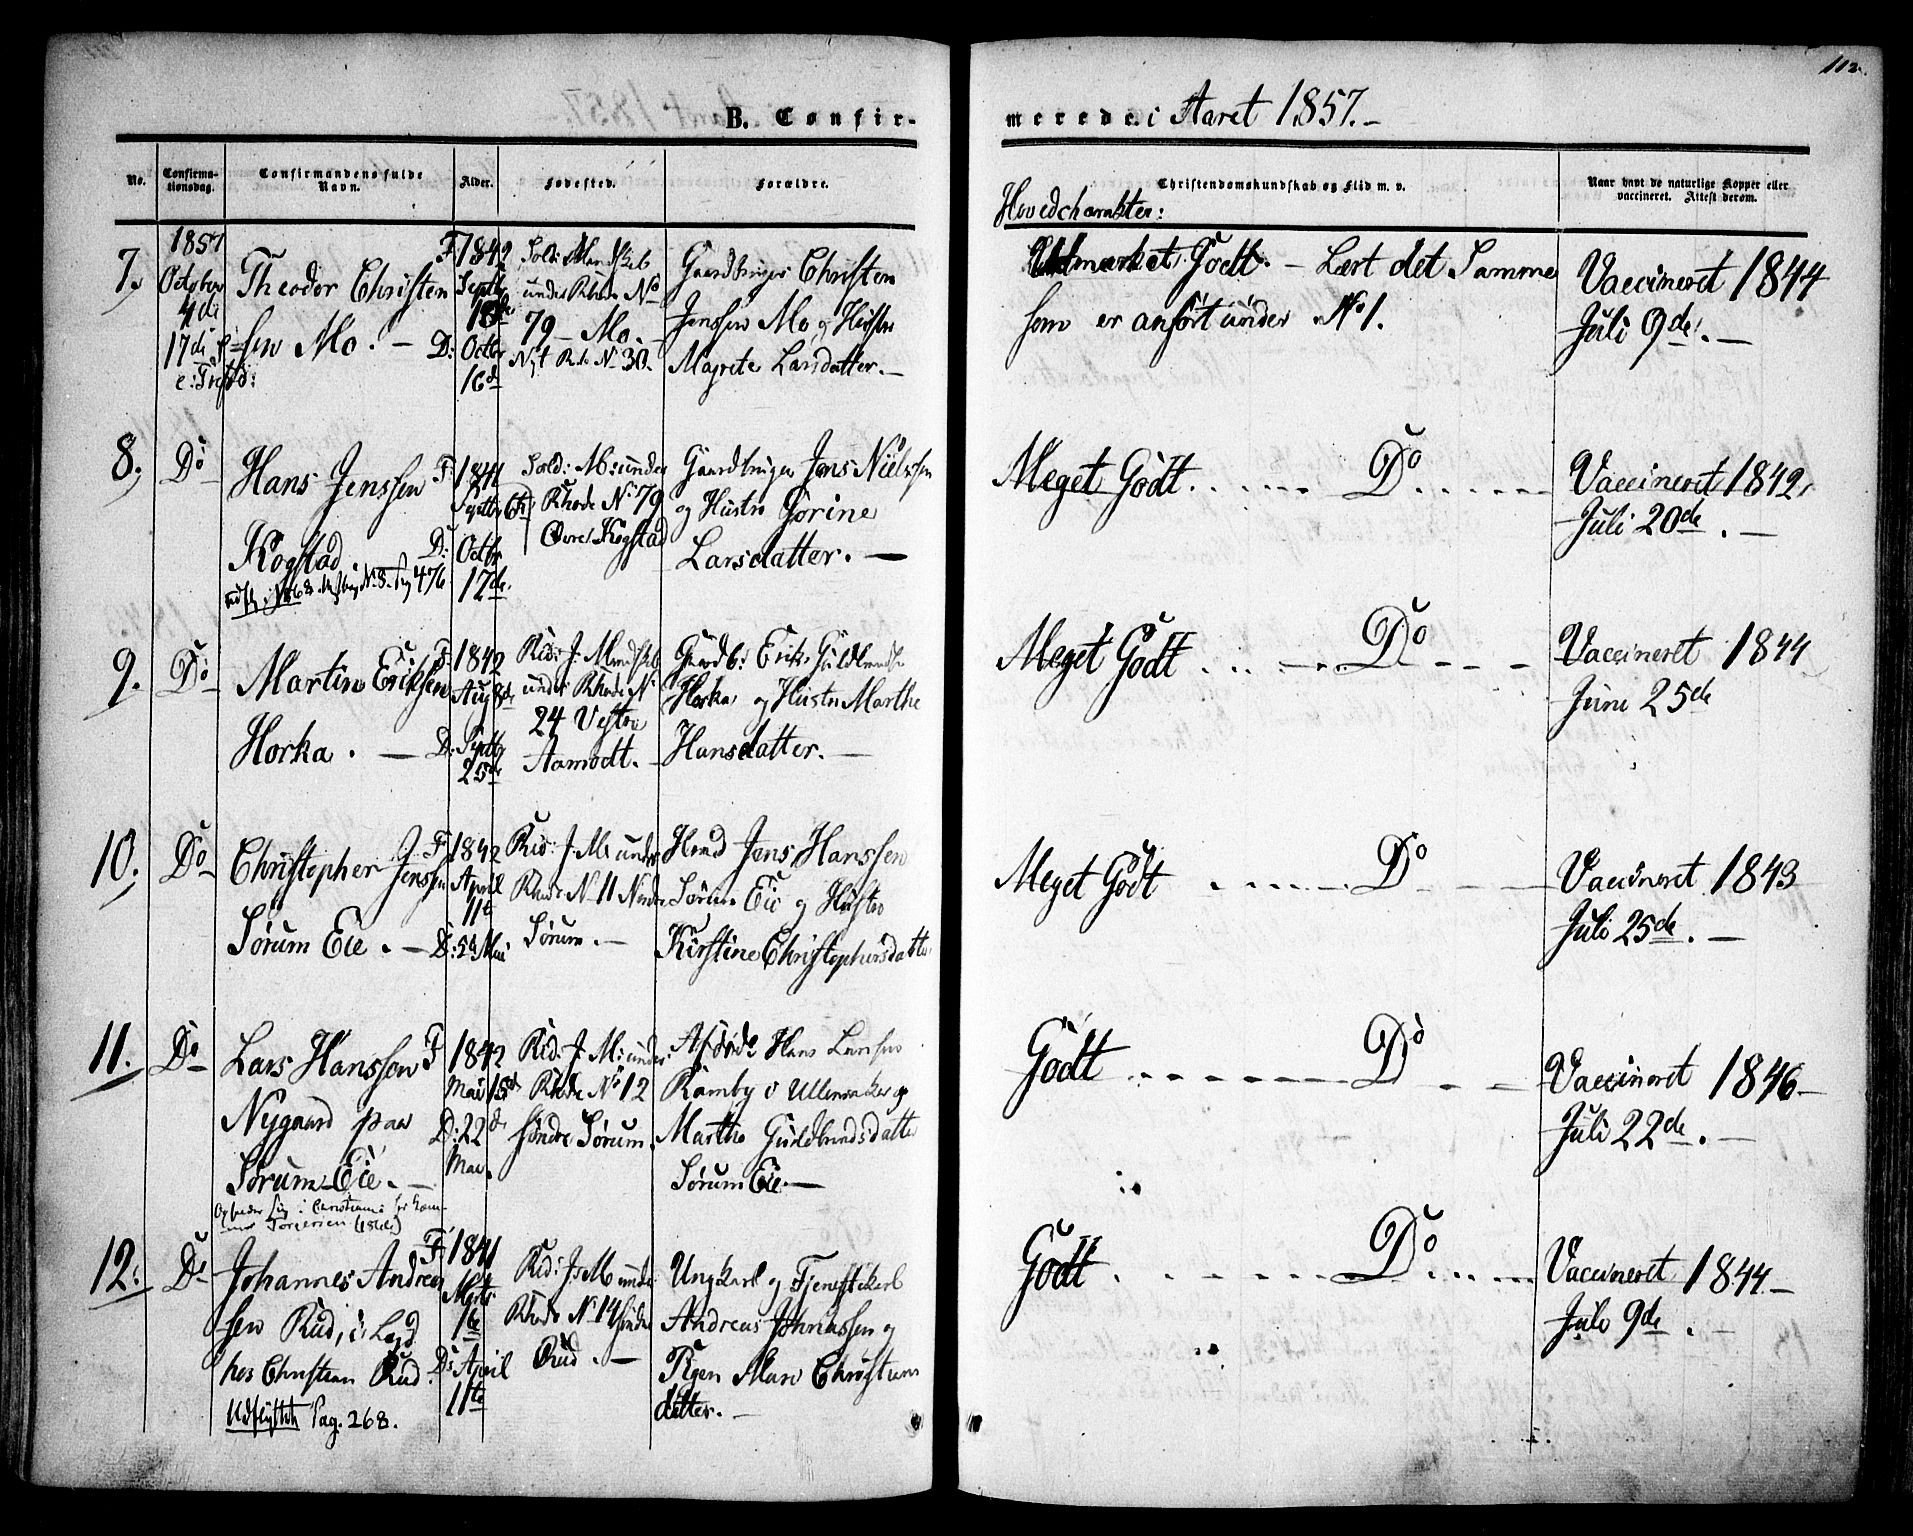 112.
B. Confir-
merede i Aaret 1857.-
No.
Confirma-
tionsdag.
Confirmandens fulde
Navn.
Alder.
Fødested.
Forældre.
Christendomskundskab og Flid m. v.
Naar havt de naturlige Kopper eller
vaccineret. Attest derom.
Hovedcharakter:
7.
1857
October
4de
17de S=
e: Trefd:
Theodor Christen
=sen Mo. -
F. 1842
Septbr
18de
D: Octbr
16d
Sold: Mandskab
under Rhode No
79 - Mo. -
Nyt Rode No 30.
Gaardbruger Christen
Jenssen Mo og Hustro
Magrete Larsdatter. -
Udmærket Godt. - Lært det Samme
som er anført under No 1.
Vaccineret 1844
Juli 9de. -
8.
Do
Hans Jenssen
Kogstad
No 8. Pag 476
F. 1841
Septbr 6te
D: Octbr
17de.
Sold: M: under
Rhode No 79
Øvre Kogstad
Gaardbruger Jens Nielssen
og Hustro Gorine
Larsdatter. -
Meget Godt. Do
Vaccineret 1842,
Juli 20de. -
9.
Do
Martin Eriksen
Horka. -
F. 1842
Aug 8de
D: Septbr
25de
Rid: J: Mandskab
under Rhode No
24 Vestre
Aamodt. -
Gaardb: Erik Guldbrands:
Horka og Hustro Marthe
Hansdatter. -
Meget Godt Do
Vaccineret 1844
Juni 25de
10.
Do
Christopher Jenssen
Sørum Eie. -
F. 1842
April
11te
D: 5d Mai
Rid: J: M: under
Rhode No 11 Nordre
Sørum. -
Jens Hanssen
Sørum Eie og Hustro
Kirstine Christophersdatter
Meget Godt Do
Vaccineret 1843
Juli 25de. -
11.
Do
Lars Hanssen
Nygaard paa
Sørum Eie. -
Opholder sig i Christiania
Torgersen
F 1842
Mai 15de
D: 22de
Mai.
Rid: J: M: under
Rhode No 12
søndre Sørum.
Afdøde Hans Larsen
Ramby i Ullensaker og
Marthe Guldbrandsdatter
Sørum Eie. -
Godt Do
Vaccineret 1846 -
Juli 22de. -
12.
Do
Johannes Andrea
sen Rud, i Legd
hos Christian Rud.
Udflyttet Pag. 268.
F. 1841
Marts
16de
D: April
11te
Rid: J: M under
Rhode No 14 søndre
Rud. -
Ungkarl og Tjenestekarl
Andreas Johnassen og
Pigen Mari Christians
datter. -
Godt Do
Vaccineret 1844 -
Juli 9de. -